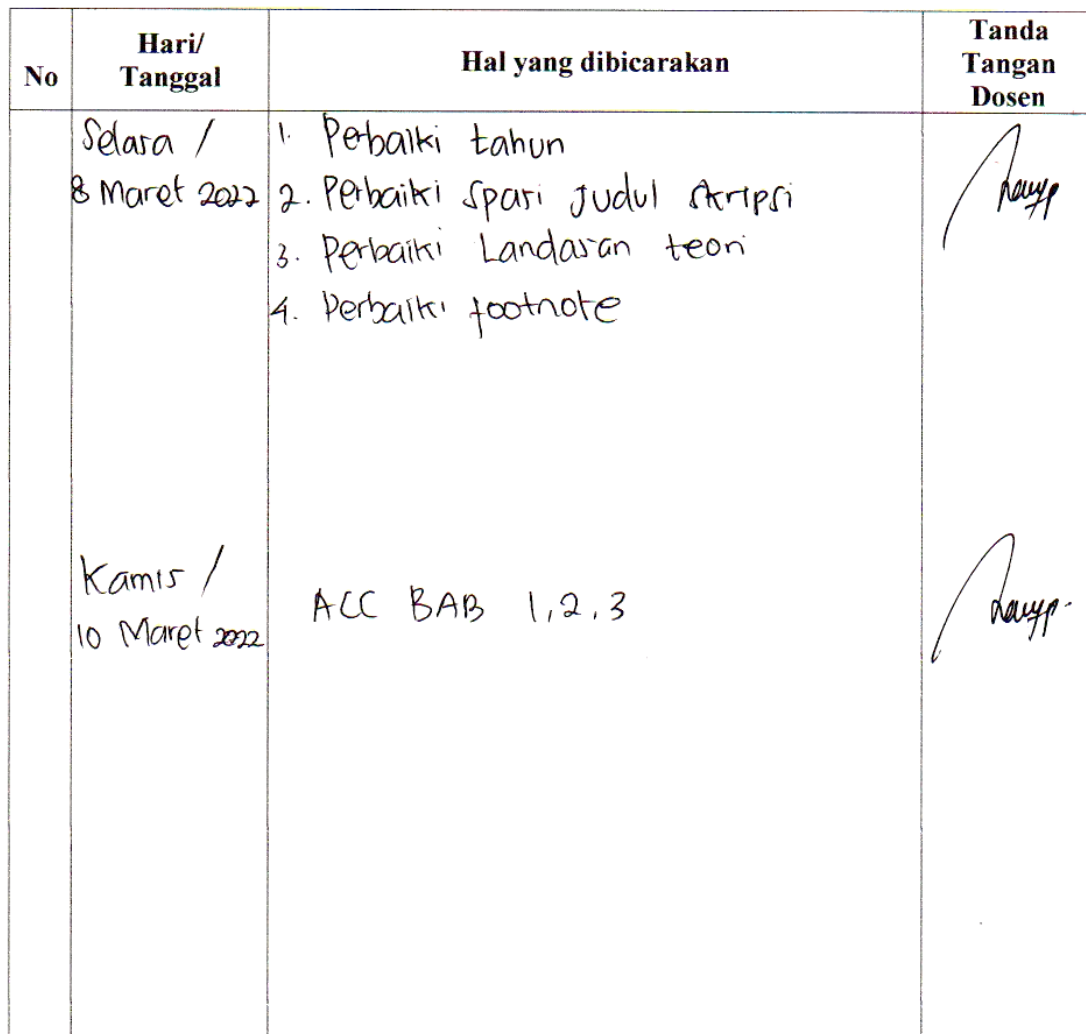 No
Hari/
Tanggal
Hal yang dibicarakan
Tanda
Tangan
Dosen
Selasa /
8 Maret 2022
1. Perbaiki tahun
2. Perbaiki spasi judul skripsi
3. Perbaiki Landasan teori
4. Perbaiki footnote
Kamis /
10 Maret 2022
ACC BAB 1,2,3